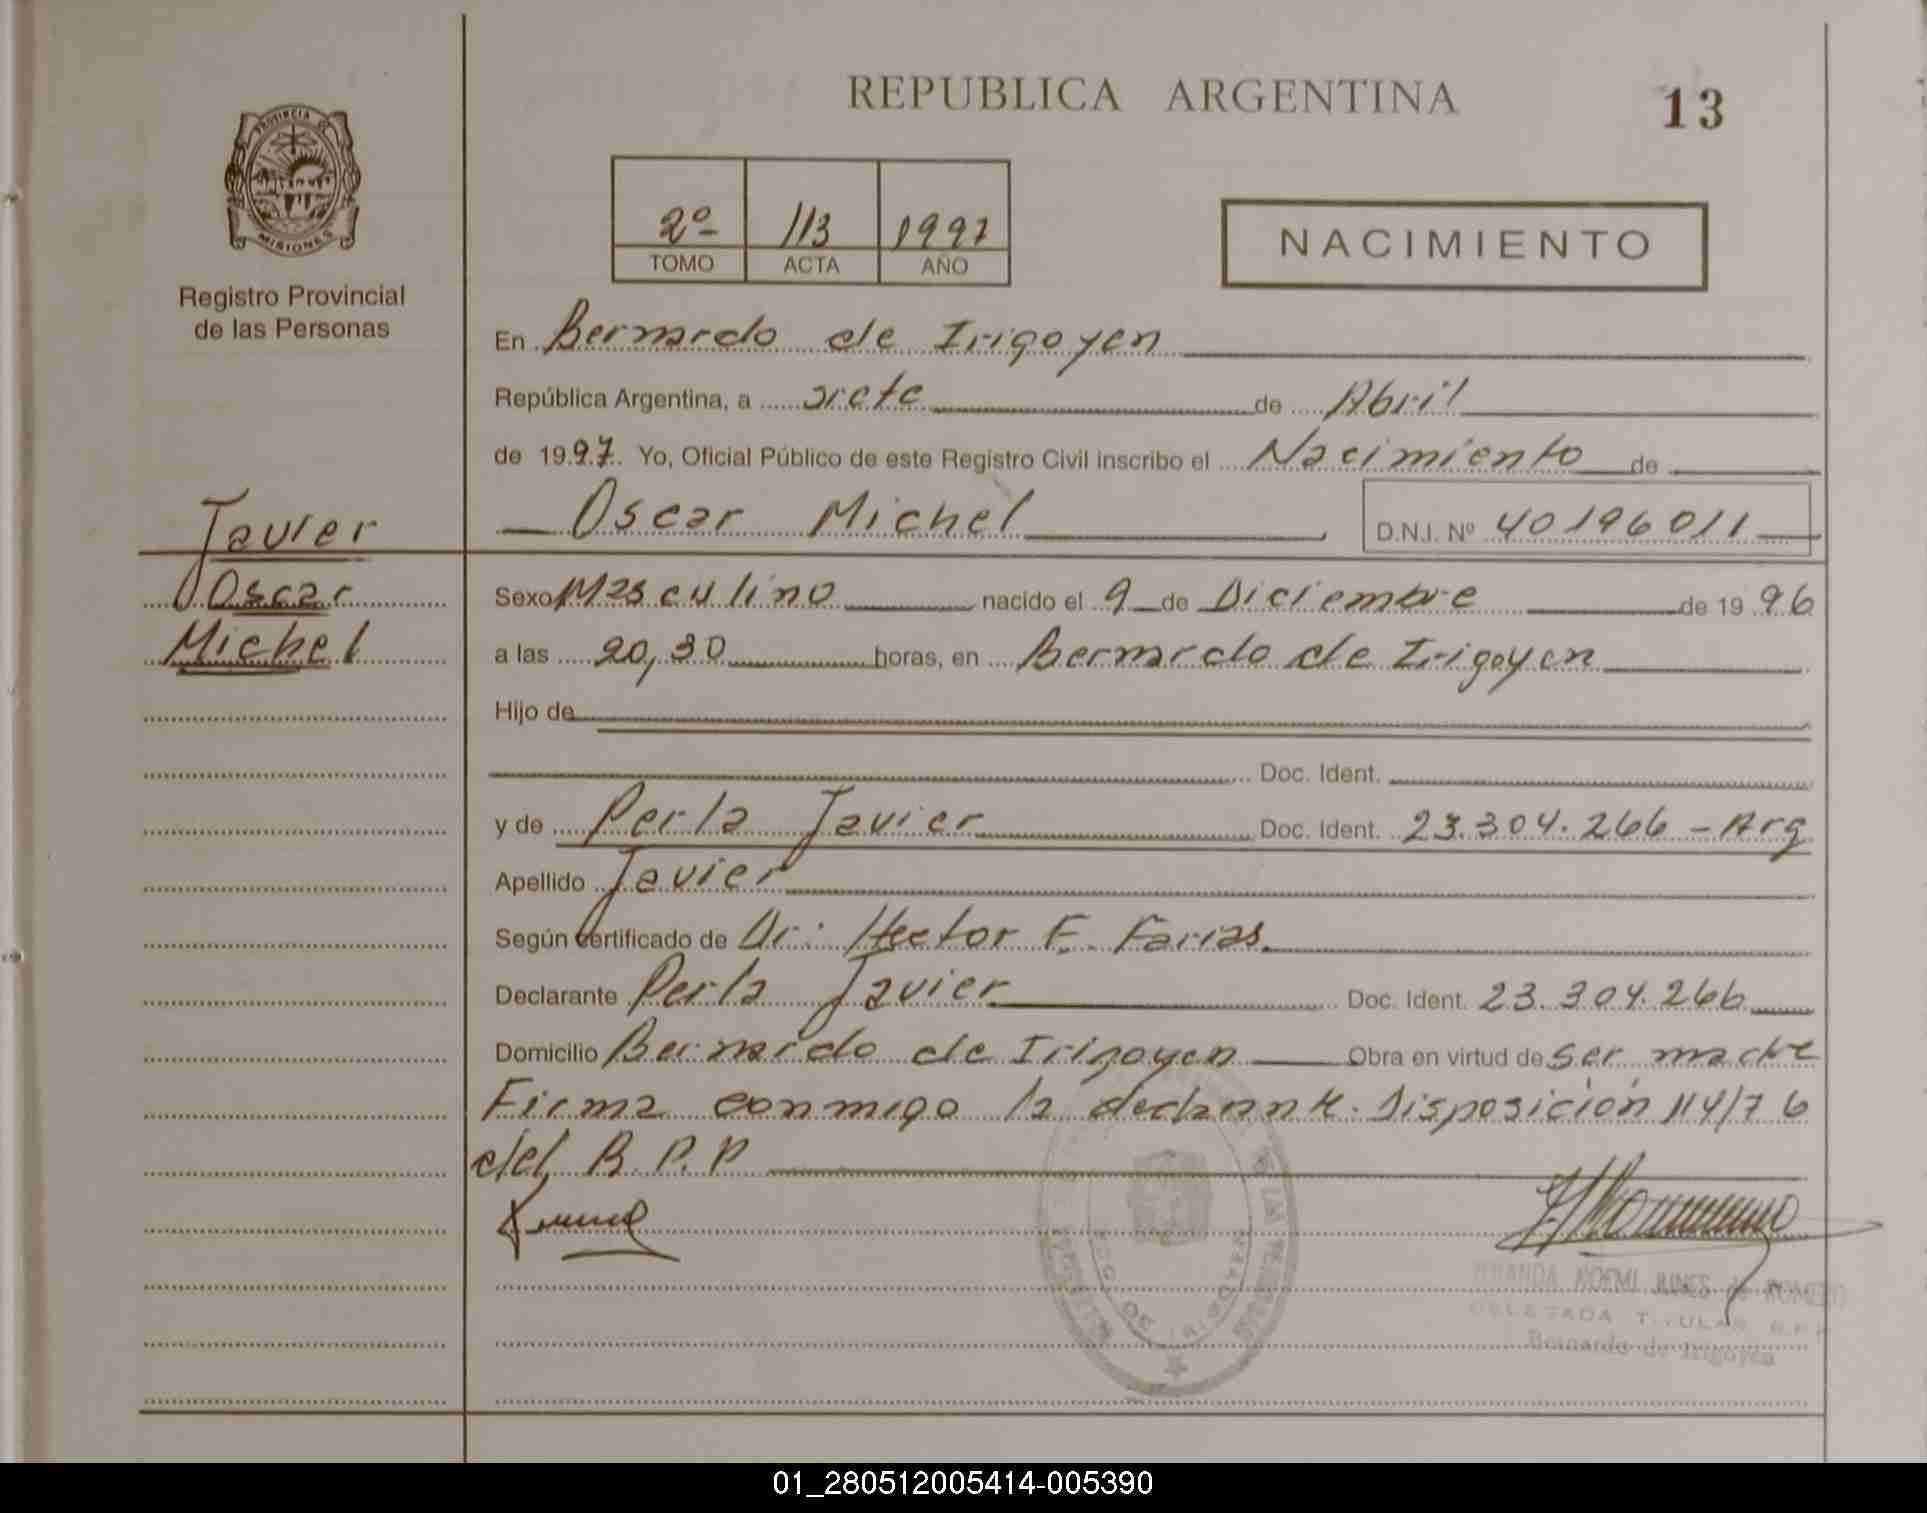 REPUBLICA ARGENTINA
13
PROVINCIA DE
MISIONES
Registro Provincial
de las Personas
2º 113 1997
TOMO ACTA AÑO
NACIMIENTO
En Bernardo de Irigoyen
República Argentina, a siete de Abril
de 1997. Yo, Oficial Público de este Registro Civil inscribo el Nacimiento de
Oscar Michel D.N.I. Nº 40196011
Javier
Oscar
Michel
Sexo Masculino nacido el 9 de Diciembre de 1996
a las 20,30 horas, en Bernardo de Irigoyen
Hijo de
Doc. Ident.
y de Perla Javier Doc. Ident. 23.304.266 - Arg
Apellido Javier
Según certificado de Dr: Hector F. Farias
Declarante Perla Javier Doc. Ident. 23.304.266
Domicilio Bernardo de Irigoyen Obra en virtud de ser madre
Firma conmigo la declarante. Disposición 114/76
del R.P.P
NOEMI de ROMERO
DELEGADA TITULAR R.P.P
Bernardo de Irigoyen
01_280512005414-005390